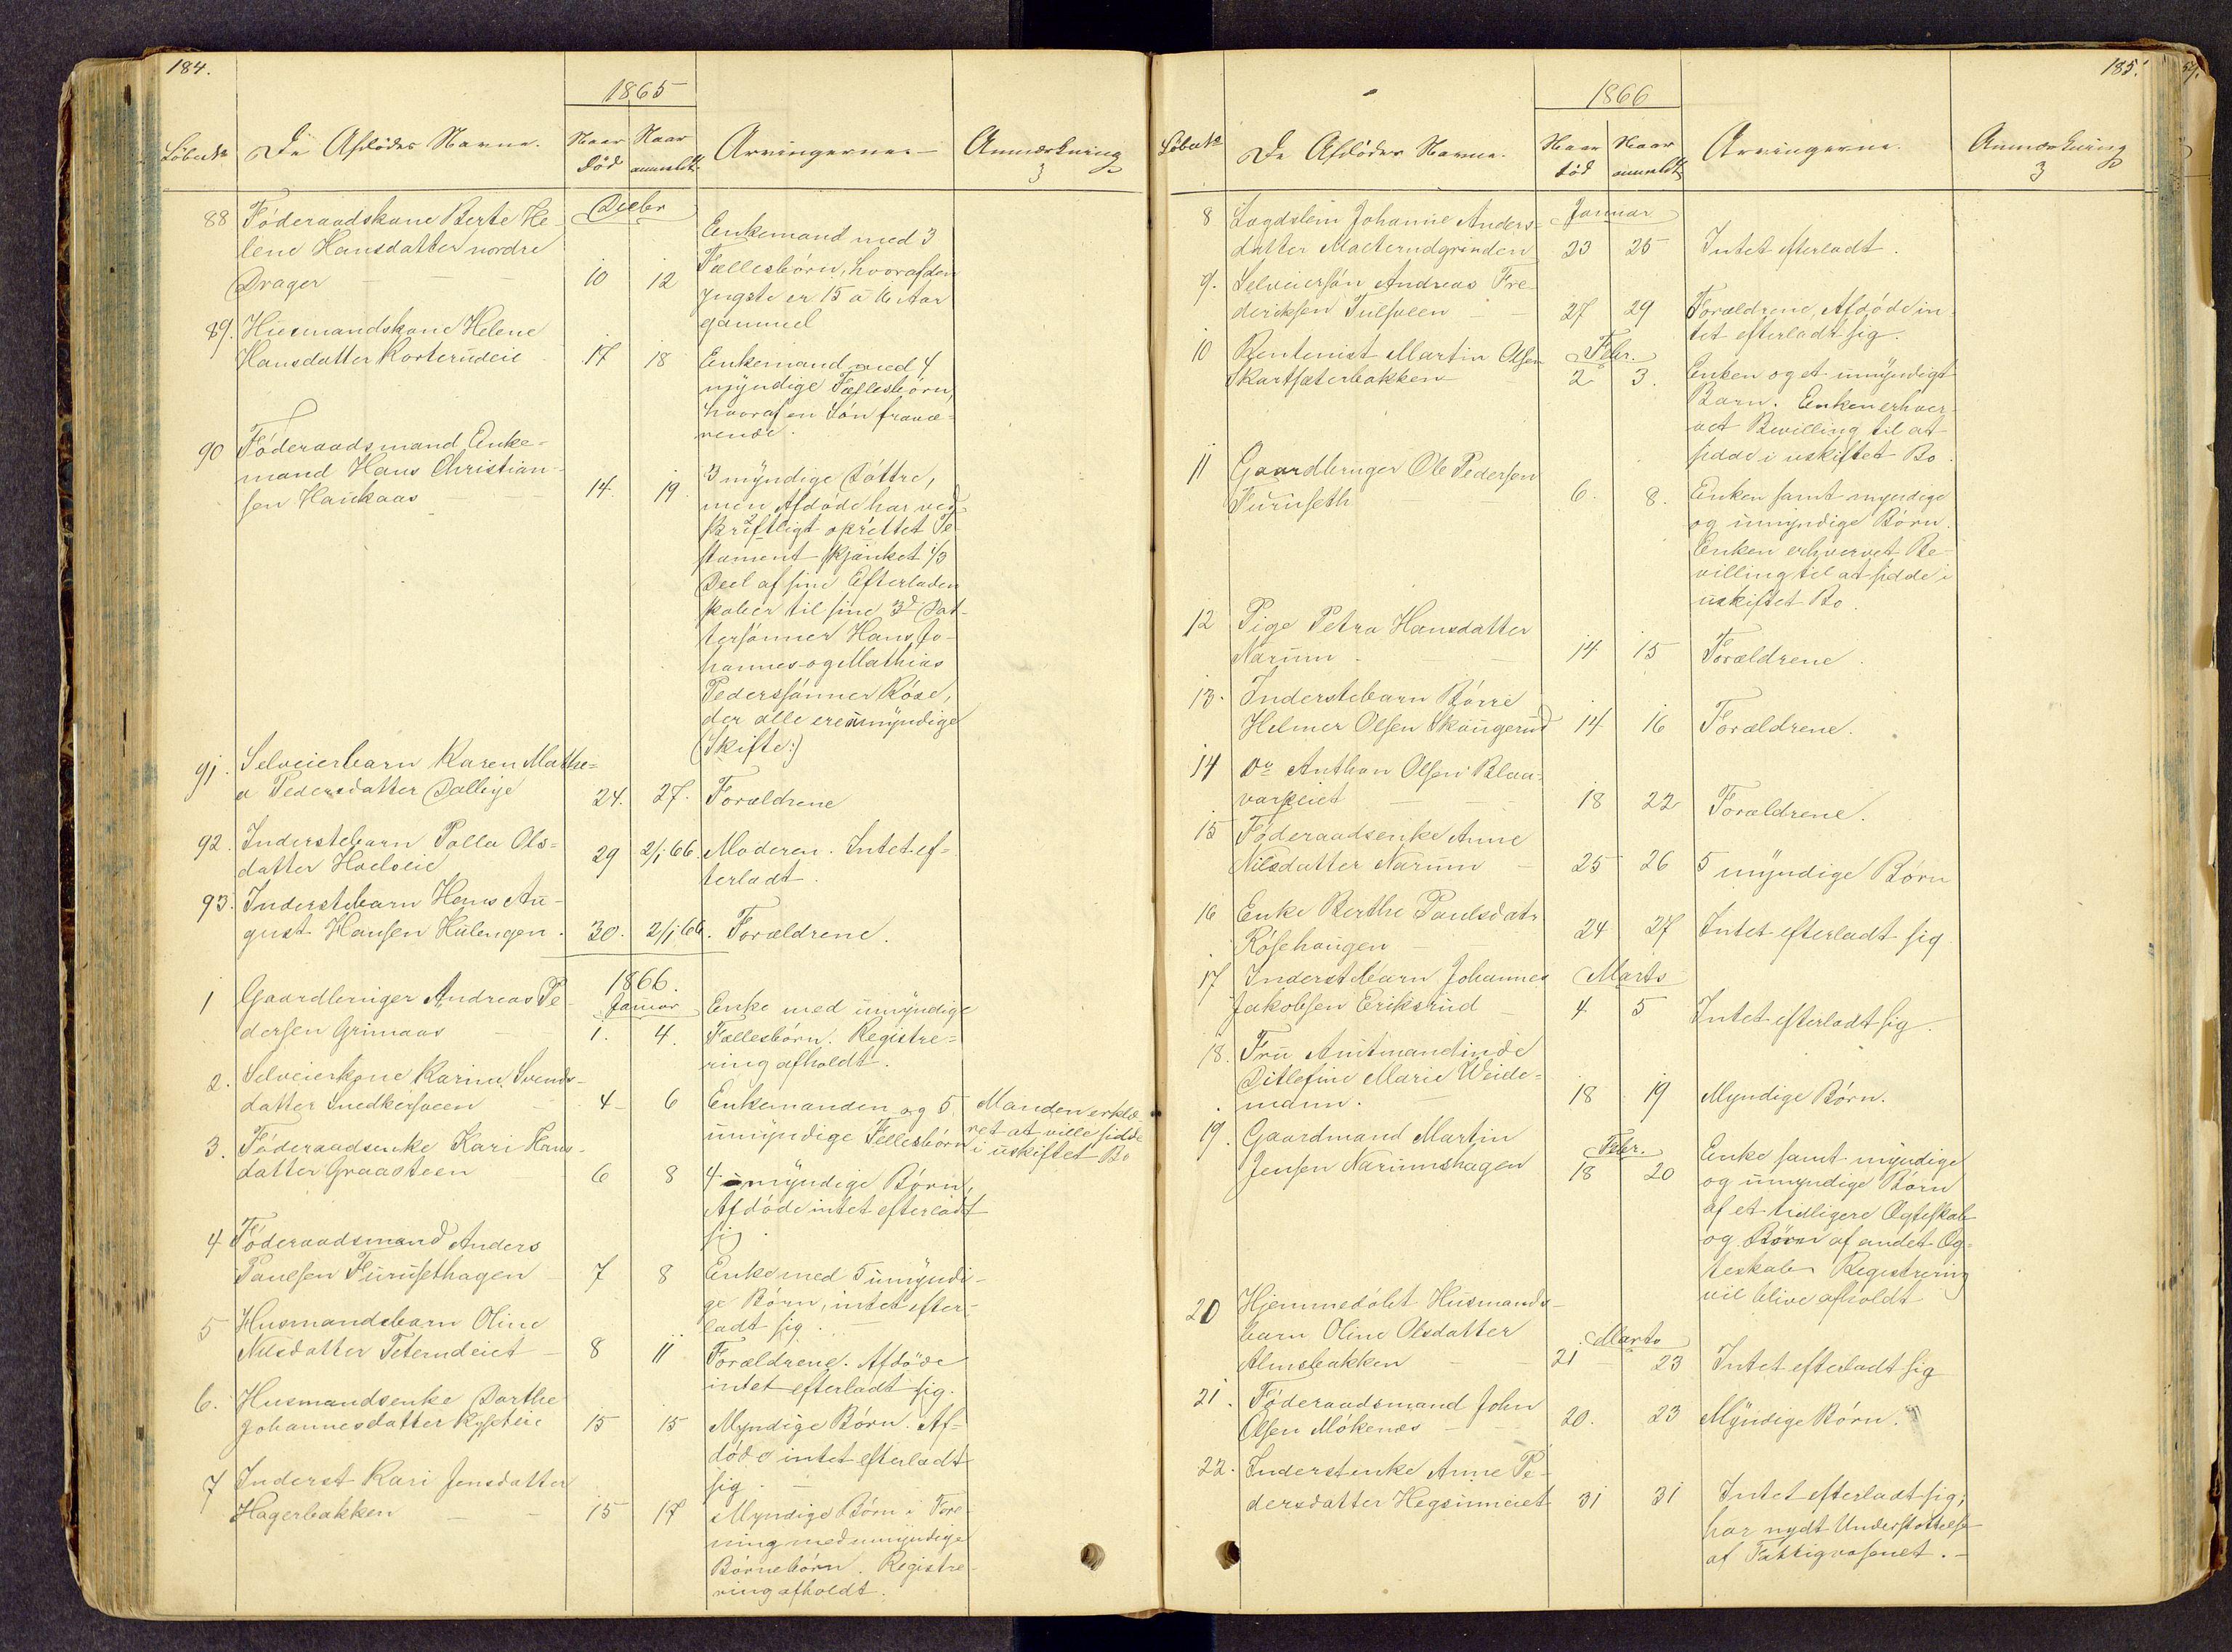 184.
1865
Löbe№ De Afdödes Navne. Naar död Naar anmeldt Arvingerne. Anmærkning
3
Decbr
88 Föderaadskone Berte He-
lene Hansdatter nordre
Drager 10 12
Enkemand med 3
Fællesbörn, hvoraf den
yngste er 15 a 16 Aar
gammel
89. Husmandskone Helene
Hansdatter Korterudeie 17 18
Enkemand med 4
myndige Fællesbörn,
hvoraf en Sön fravæ-
rende.
90 Föderaadsmand Enke-
mand Hans Christian-
sen Haukaas 14. 19.
3 myndige Döttre,
men Afdöde har ved
skriftligt oprettet Te-
stament skjænket 1/3
Deel af sine Efterladen
skaber til sine 3de Dat-
tersönner Hans, Jo-
hannes og Mathias
Pederssönner Röse,
der alle ere umyndige
(Skifte:)
91. Selveierbarn Karen Mathe-
a Pedersdatter Dællige 24. 27. Forældrene
92. Inderstebarn Polla Ols-
datter Hoelseie 29 2/1 66. Moderen. Intet ef-
terladt.
93. Inderstebarn Hans Au-
gust Hansen Hulengen. 30. 2/1 66. Forældrene.
1866.
Januar
1 Gaardbruger Andreas Pe-
dersen Grimaas 1. 4.
Enke med umyndige
Fællesbörn. Registre-
ring afholdt.
2. Selveierkone Karine Svends-
datter Snedkersveen 4 6
Enkemanden og 5
umyndige Fellesbörn
Manden erklæ
ret at ville sidde
i uskiftet Bo
3. Föderaadsenke Kari Hans-
datter Graasteen 6 8
4 myndige Börn,
Afdöde intet efterladt
sig.
4 Föderaadsmand Anders
Paulsen Furusethagen 7 8
Enke med 5 umyndi-
ge Börn, intet efter-
ladt sig.
5 Husmandsbarn Oline
Nilsdatter Teterudeiet 8 11
Forældrene. Afdöde
intet efterladt sig.
6. Husmandsenke Dorthe
Johannesdatter 15 15
Myndige Börn. Af-
döde intet efterladt
sig.
7 Inderst Kari Jensdatter
Hagerbakken 15 17
Myndige Börn i Fore-
ning med umyndige
Börnebörn. Registre-
ring afholdt.
185.
1866
Löbe№ De Afdödes Navne. Naar död Naar anmeldt Arvingerne. Anmærkning
3
Januar
8 Lægdslem Johanne Anders-
datter Mælterudgrinden 23 25 Intet efterladt.
9. Selveiersön Andreas Fre-
deriksen Fulsveen 27 29 Forældrene, Afdöde in-
tet efterladt sig.
Febr.
10 Rentenist Martin Olsen
Skartsæterbakken 2 3.
Enken og et umyndigt
Barn. Enken erhver-
vet Bevilling til at
sidde i uskiftet Bo.
11 Gaardbruger Ole Pedersen
Furuseth 6. 8.
Enken samt myndige
og umyndige Börn.
Enken erhvervet Be-
villing til at sidde i
uskiftet Bo.
12 Pige Petra Hansdatter
Narum 14 15 Forældrene.
13. Inderstebarn Börre
Helmer Olsen Skaugerud 14 16 Forældrene.
14 Do Anthon Olsen Blaa-
varpeiet 18 22 Forældrene.
15 Föderaadsenke Anne
Nilsdatter Narum 25 26 5 myndige Börn
16 Enke Berthe Paulsdatr
Rösehaugen 24 27 Intet efterladt sig
Marts
17 Inderstebarn Johannes
Jakobsen Eriksrud 4 5 Intet efterladt sig.
18. Fru Amtmandinde
Ditlefine Marie Weide-
mann. 18 19 Myndige Börn.
Febr.
19. Gaardmand Martin
Jensen Narumshagen 18 20
Enke samt myndige
og umyndige Börn
af et tidligere Ægteskab
og Börn af andet Æg-
teskab Registrering
vil blive afholdt
Marts
20 Hjemmedöbt Husmands-
barn Oline Olsdatter
Almsbakken 21 23 Intet efterladt sig
21. Föderaadsmand John
Olsen Mökenæs 20. 23 Myndige Börn.
22. Inderstenke Anne Pe-
dersdatter Hegsumeiet 31 31 Intet efterladt sig;
har nydt Understöttelse
af Fattigvæsenet.